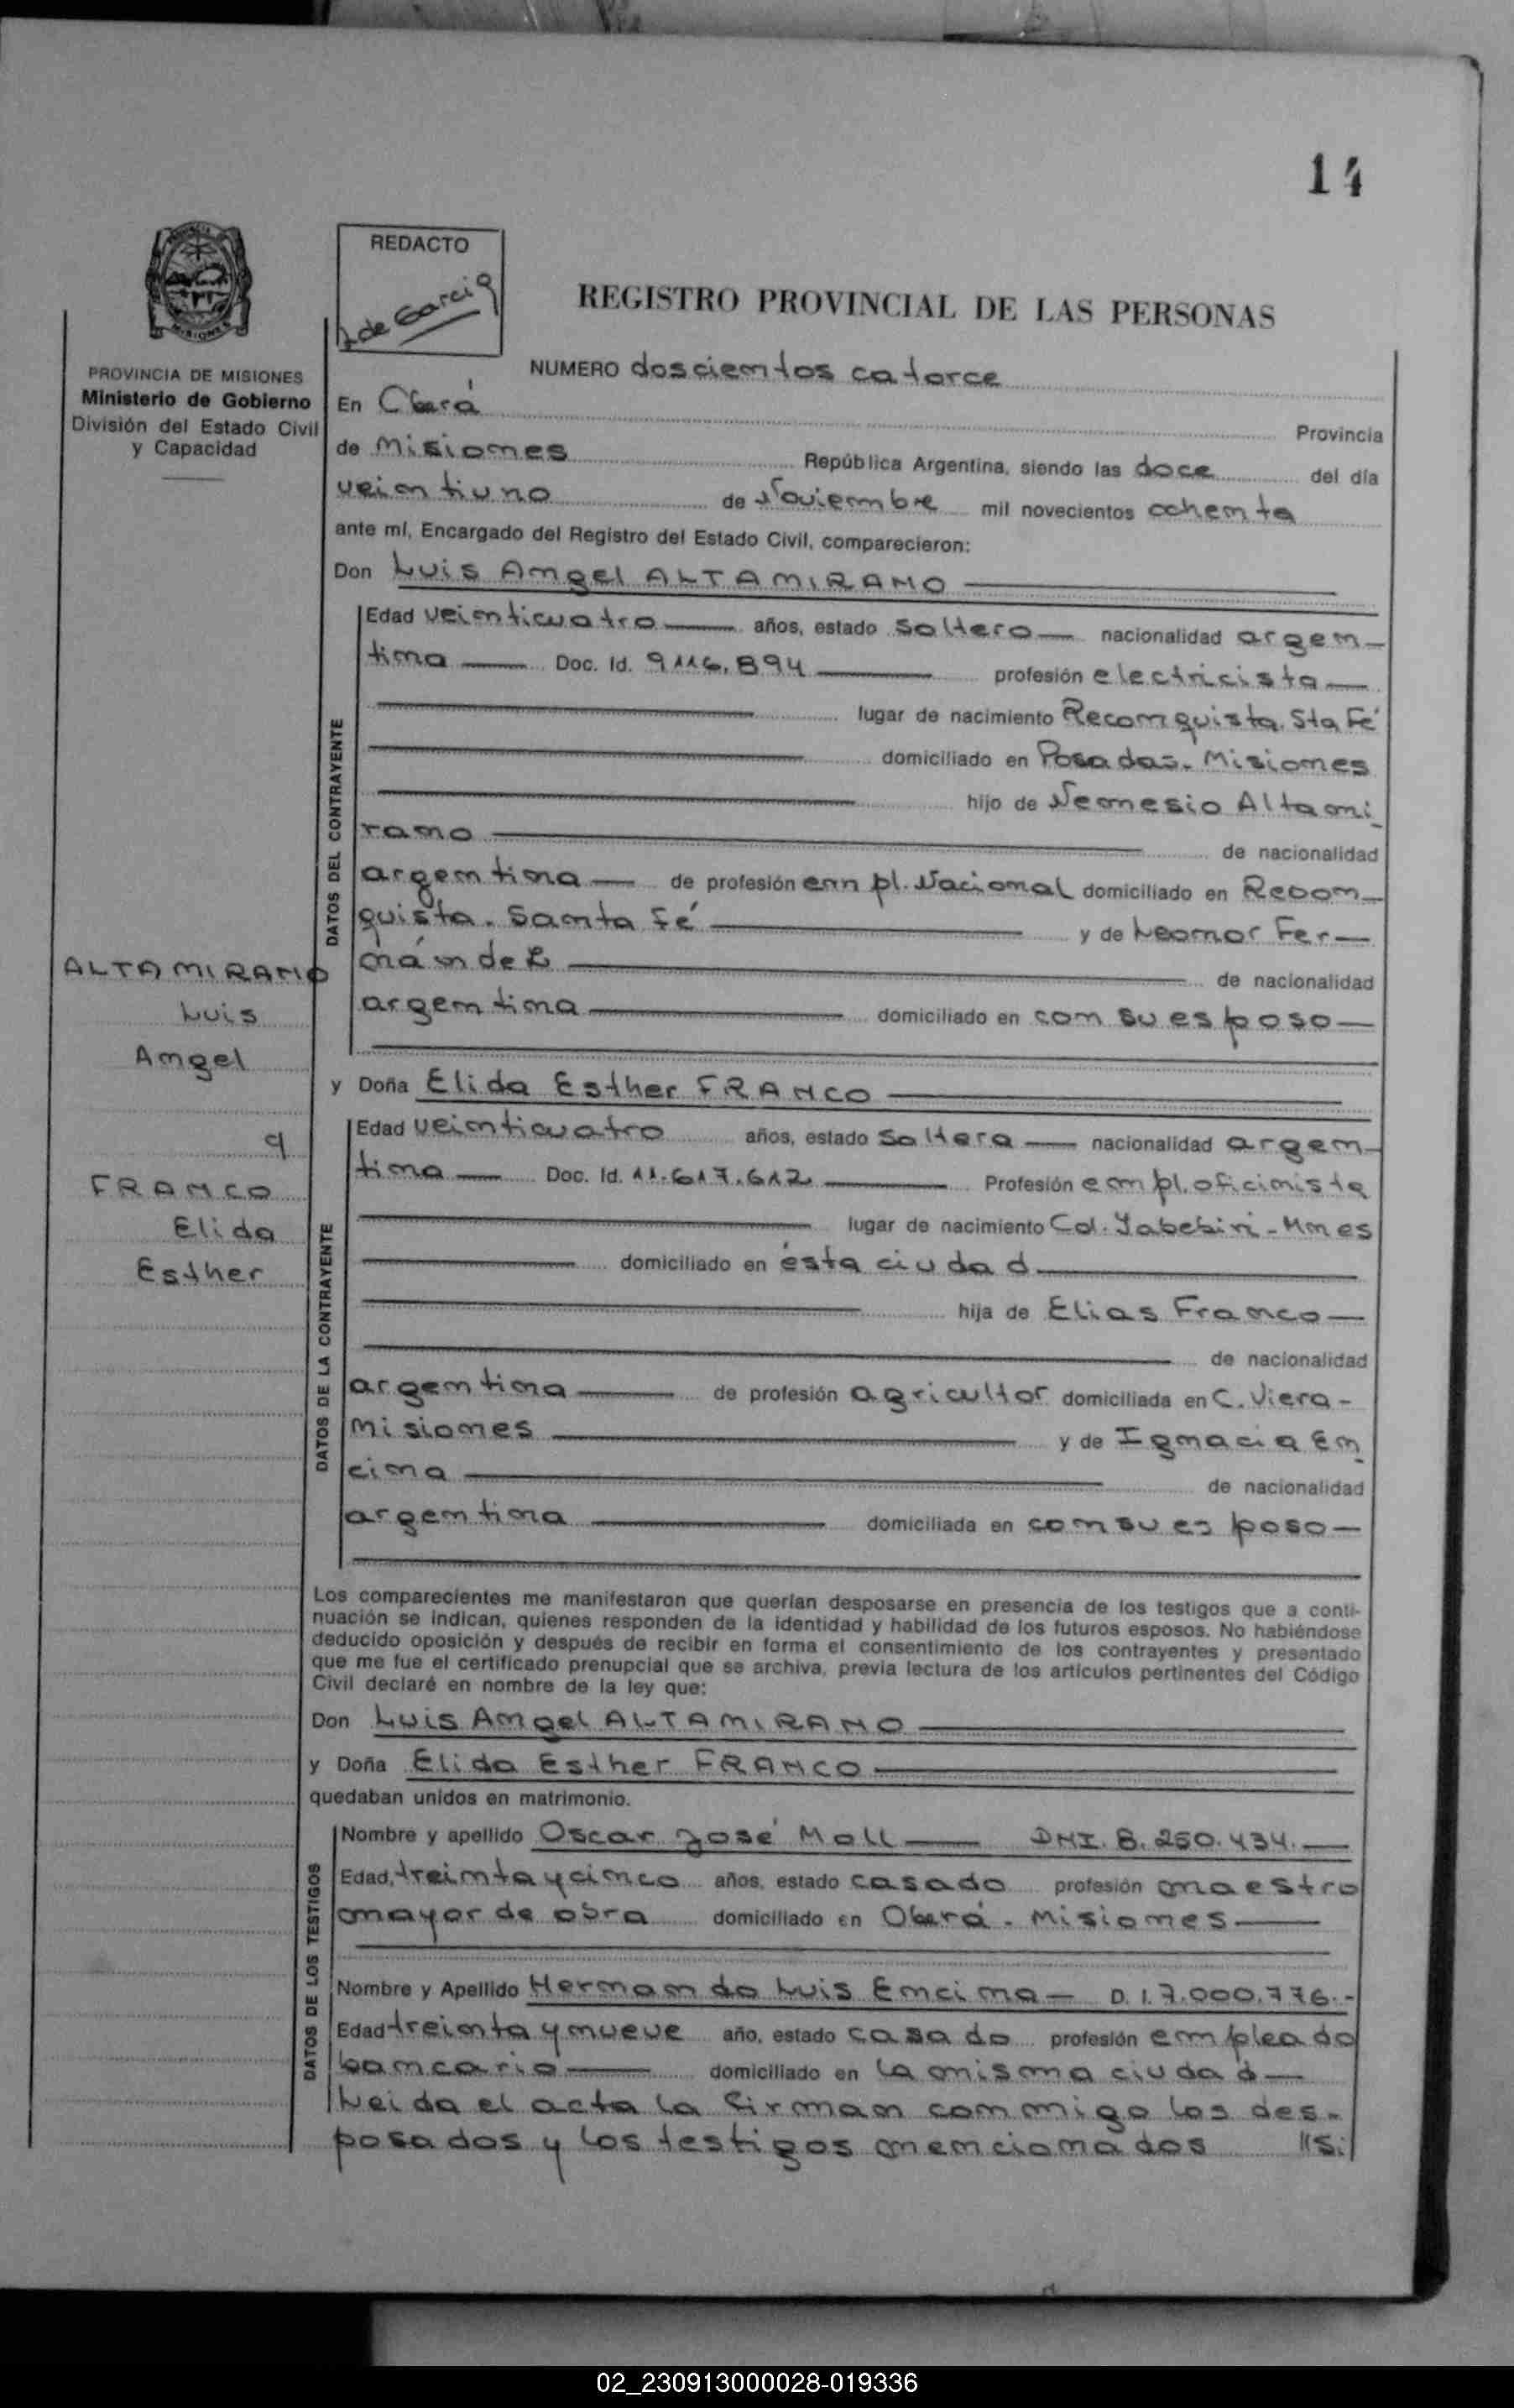 14
REDACTO
de Garcia
REGISTRO PROVINCIAL DE LAS PERSONAS
MISIONES
PROVINCIA DE MISIONES
Ministerio de Gobierno
División del Estado Civil
y Capacidad
NUMERO doscientos catorce
En Oberá
Provincia
de Misiones República Argentina, siendo las doce del día
veintiuno de Noviembre mil novecientos ochenta
ante mí, Encargado del Registro del Estado Civil, comparecieron:
Don Luis Angel ALTAMIRANO
DATOS DEL CONTRAYENTE
Edad veinticuatro años, estado soltero nacionalidad argen-
tina Doc. Id. 9116.894 profesión electricista
lugar de nacimiento Reconquista. Sta Fé
domiciliado en Posadas. Misiones
hijo de Nemesio Altami
rano de nacionalidad
argentina de profesión empl. Nacional domiciliado en Recon-
quista. Santa Fé y de Leonor Fer-
nández de nacionalidad
argentina domiciliado en con su esposo
ALTAMIRANO
Luis
Angel
y
FRANCO
Elida
Esther
y Doña Elida Esther FRANCO
DATOS DE LA CONTRAYENTE
Edad veinticuatro años, estado soltera nacionalidad argen-
tina Doc. Id. 11.617.612 Profesión empl. oficinista
lugar de nacimiento Col. Yabebiri - Mnes
domiciliado en ésta ciudad
hija de Elias Franco
de nacionalidad
argentina de profesión agricultor domiciliada en C. Viera -
Misiones y de Ignacia En
cina de nacionalidad
argentina domiciliada en con su esposo
Los comparecientes me manifestaron que querían desposarse en presencia de los testigos que a conti-
nuación se indican, quienes responden de la identidad y habilidad de los futuros esposos. No habiéndose
deducido oposición y después de recibir en forma el consentimiento de los contrayentes y presentado
que me fue el certificado prenupcial que se archiva, previa lectura de los artículos pertinentes del Código
Civil declaré en nombre de la ley que:
Don Luis Angel ALTAMIRANO
y Doña Elida Esther FRANCO
quedaban unidos en matrimonio.
DATOS DE LOS TESTIGOS
Nombre y apellido Oscar José Moll DNI. 8.250.434.
Edad, treinta y cinco años, estado casado profesión maestro
mayor de obra domiciliado en Oberá - Misiones
Nombre y Apellido Hernando Luis Encina D.I.7.000.776.-
Edad treinta y nueve año, estado casado profesión empleado
bancario domiciliado en la misma ciudad
Leida el acta la firman conmigo los des-
posados y los testigos mencionados //S:
02_230913000028-019336